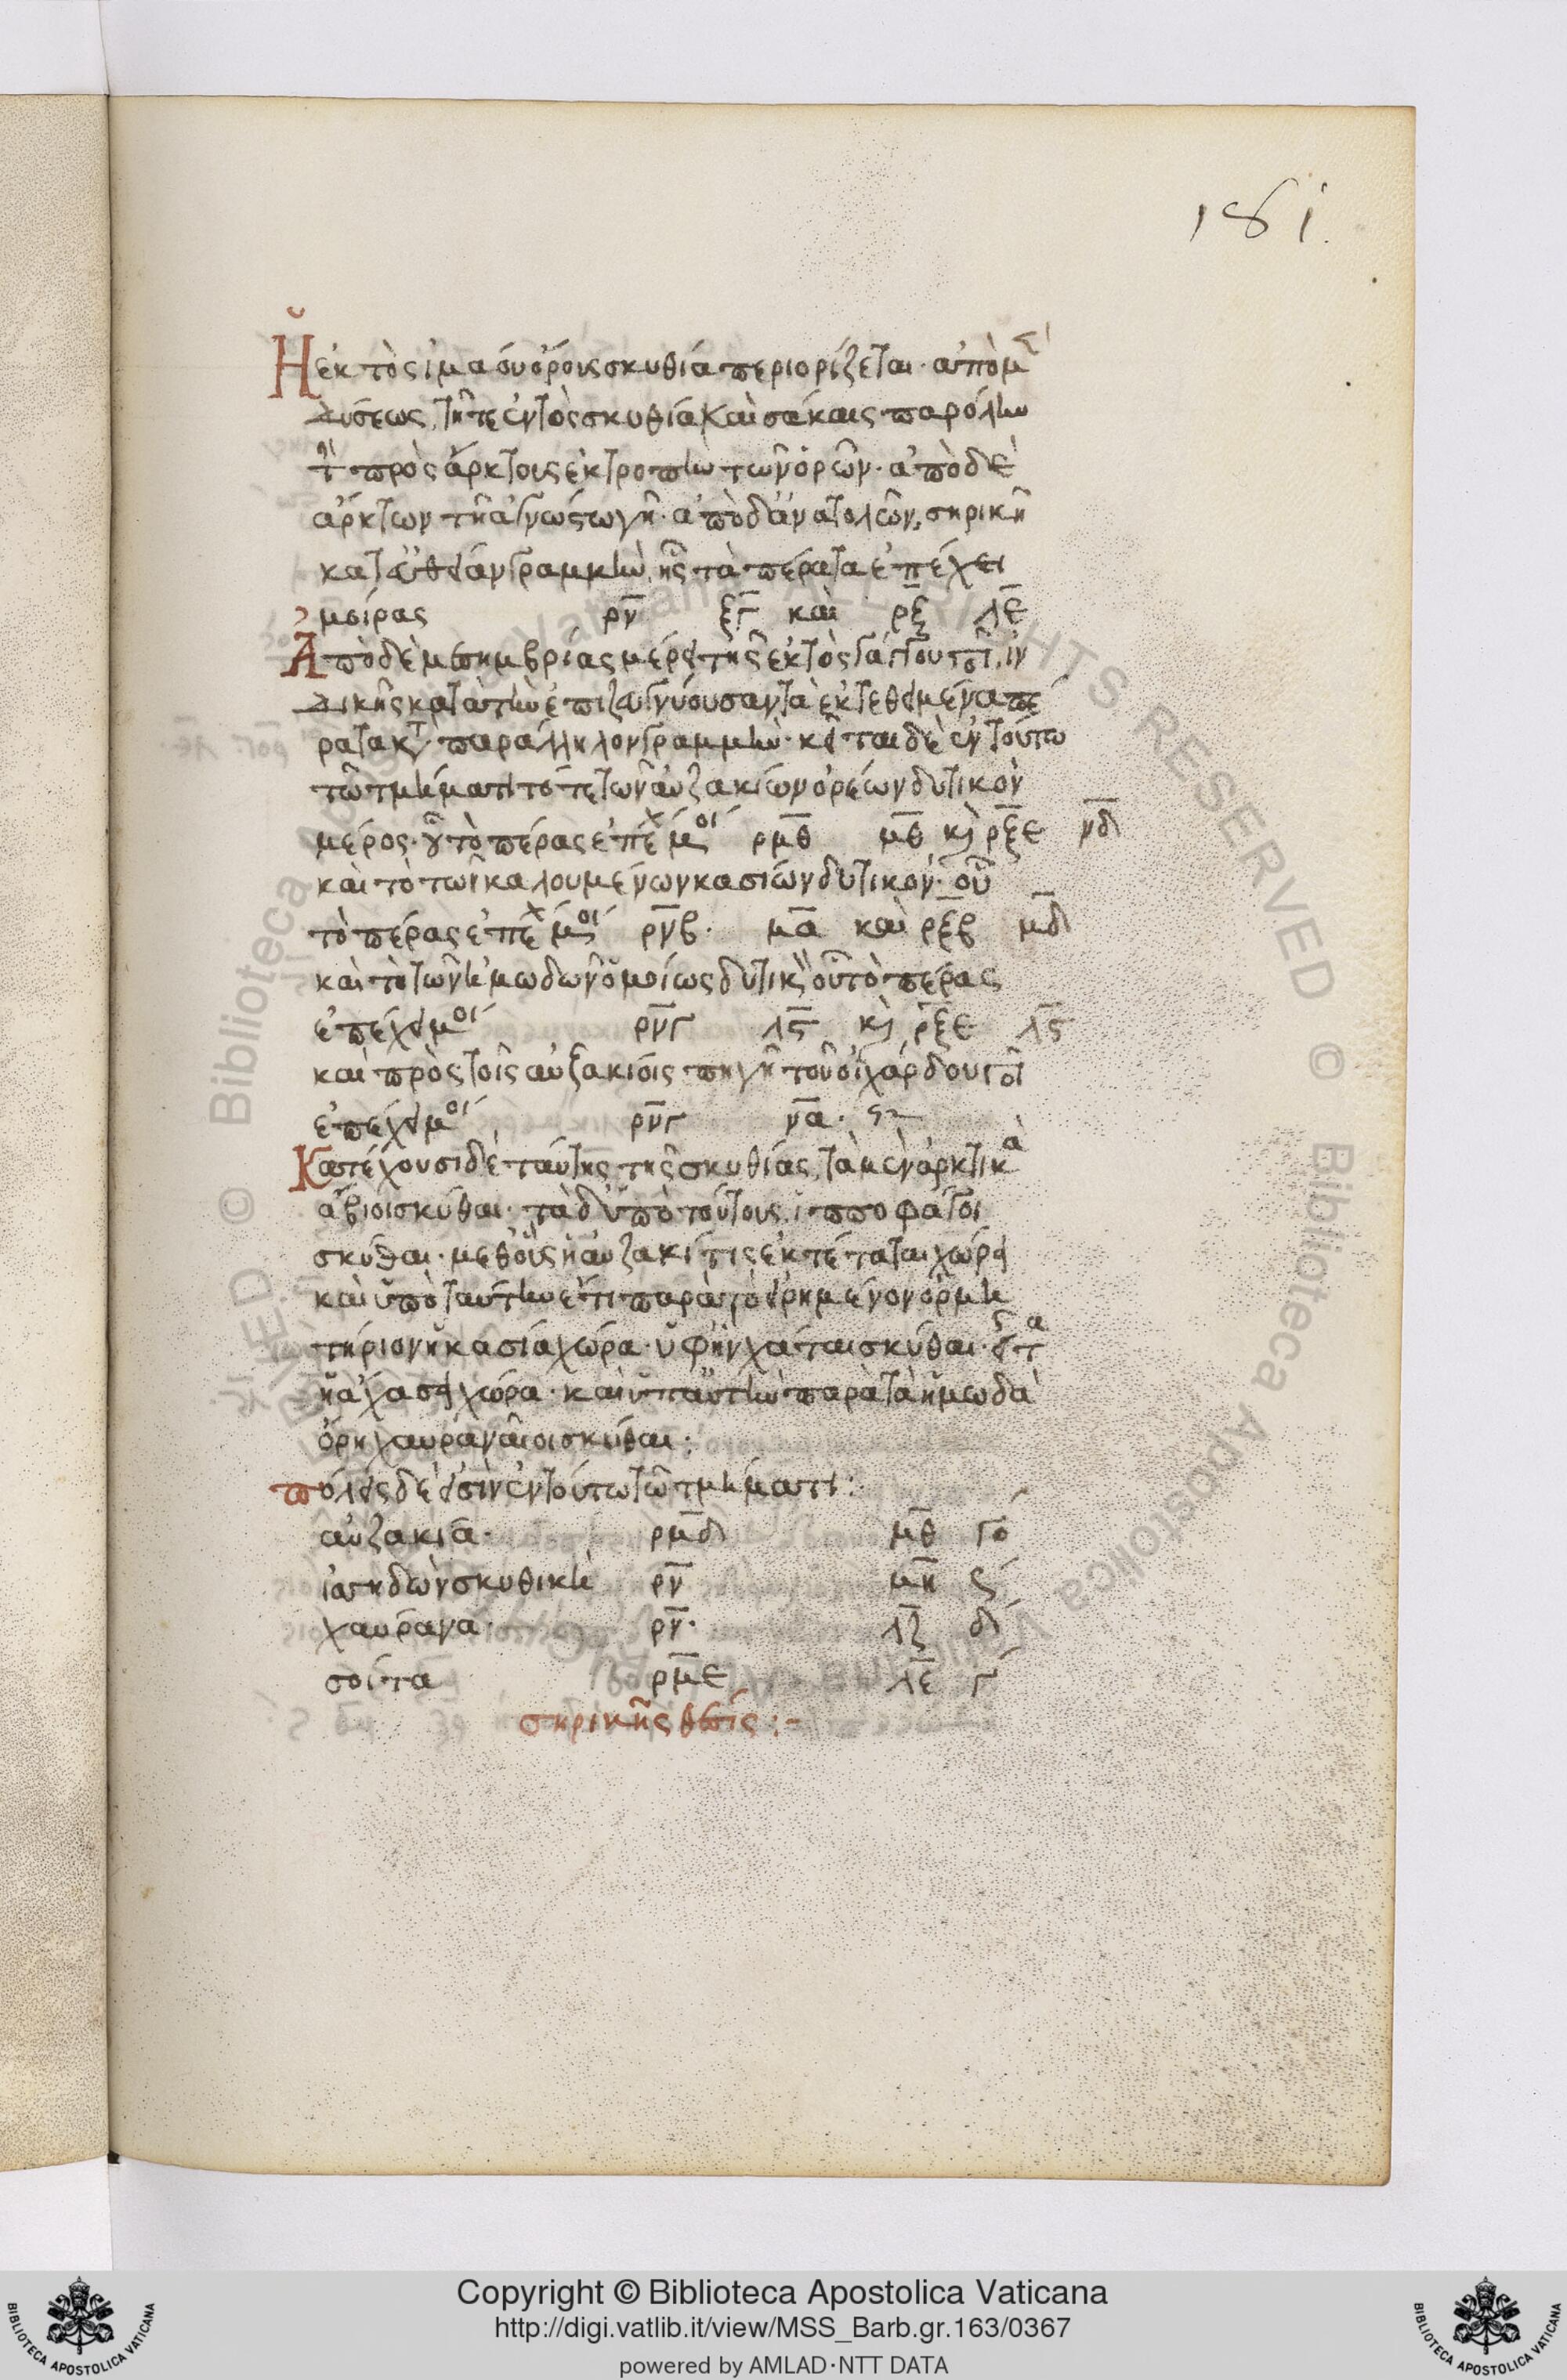 181.
Ἡ ἐκτὸς ἰμάου ὄρους σκυθία περιορίζεται· ἀπὸ μ
δύσεως, τῆ τε ἐντὸς σκυθία καὶ σάκαις παρ' ὅλην
τ πρὸς ἄρκτους ἐκτροπὴν τῶν ὀρῶν· ἀπὸ δὲ
ἄρκτων τῆ ἀγνώστω γῆ· ἀπὸ δ' ἀνατολῶν, σηρικῆ
κατ' εὐθεῖαν γραμμὴν, ἧς τὰ πέρατα ἐπέχει
μοίρας ρν ξγ καὶ ρξ λε
Ἀπὸ δὲ μεσημβρίας μέρει τῆς ἐκτὸς γάγγου ποτ ἰν
δικῆς κατὰ τὴν ἐπιζευγνύουσαν τὰ ἐκτεθειμένα πέ
ρατα κτ παράλληλον γραμμὴν· κεῖται δὲ ἐν τούτω
τῶ τμήματι τό τε τῶν αὐζακίων ὀρέων δυτικὸν
μέρος· οὗ τὸ πέρας ἐπέχ μοί ρμθ μθ κὶ ρξε νδ
καὶ τὸ τῶν καλουμένων κασίων δυτικόν· οὗ
τὸ πέρας ἐπέχ μοί ρνβ· μα καὶ ρξβ μδ
καὶ τὸ τῶν ἠμωδῶν ὁμοίως δυτικ οὗ τὸ πέρας
ἐπέχει μοί ρνγ λς κὶ ρξε λς
καὶ πρὸς τοῖς αὐξακίοις πηγὴ τοῦ οἰχάρδου ποτ
ἐπέχει μοί ρνγ να·
Κατέχουσι δὲ ταύτης τῆς σκυθίας, τὰ μὲν ἀρκτικὰ
ἄβιοι σκύθαι· τὰ δ' ὑπὸ τούτους, ἱπποφάγοι
σκύθαι· μεθ' οὓς ἡ αὐζακῖτις ἐκτέταται χώρα
καὶ ὑπὸ ταύτην ἔτι παρὰ τὸ εἰρημένον ὁρμη
τήριον ἡ κασία χώρα· ὑφ' ἣν χάται σκύθαι· εἶτα
ἡ ἀχάσα χώρα· καὶ ὑπ' αὐτὴν παρὰ τὰ ἠμωδὰ
ὄρη χαυραναῖοι σκύθαι:
πόλεις δέ εἰσιν ἐν τούτω τῶ τμήματι:
αὐζακία· ρμδ μθ γο
ἰσηδὼν σκυθικὴ ρν μη ς
χαύρανα· ρν· λζ δ
σοίτα ρμε λε γ
σηρικῆς θέσις:-
Copyright © Biblioteca Apostolica Vaticana
http://digi.vatlib.it/view/MSS_Barb.gr.163/0367
powered by AMLAD·NTT DATA